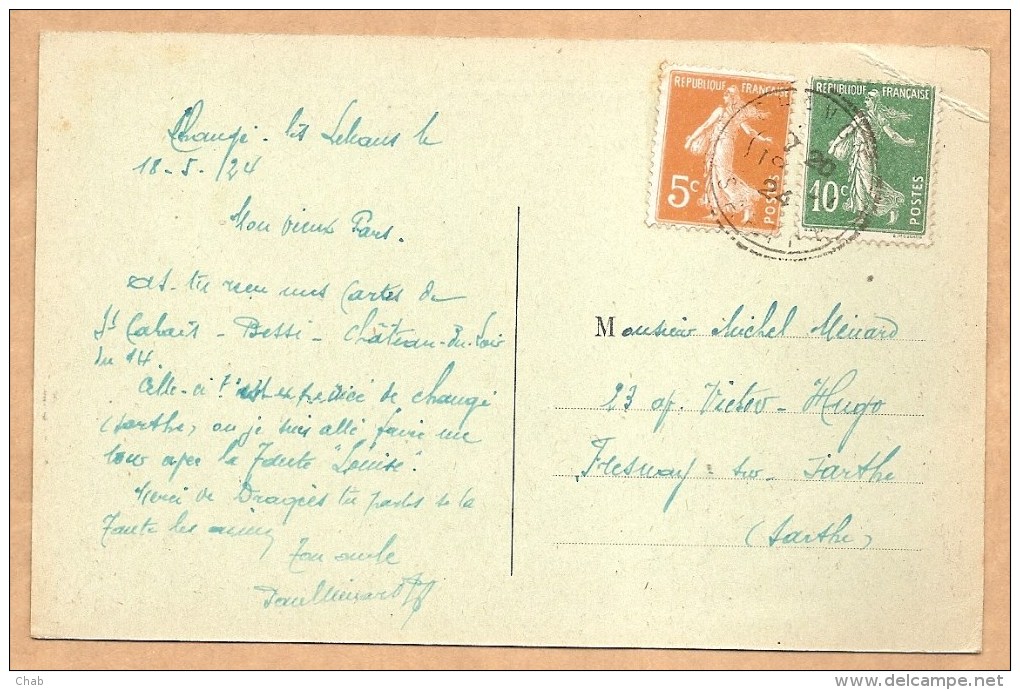 Changé - lès Lemans le
18-5-/24
Mon vieux
as-tu reçu mes cartes de
St Calais - Bessé - Château-du-Loir
du 14.
Celle-ci t'est expédiée de Changé
(Sarthe) où je suis allé faire un
tour avec la Tante "Louise".
Merci de Dragées tu
Tante les
Ton oncle
Paul Ménard
RÉPUBLIQUE FRANÇAISE
5c
POSTES
RÉPUBLIQUE FRANÇAISE
10c
POSTES
20
24
Monsieur Michel Ménard
23 Victor-Hugo
Fresnay sur Sarthe
(Sarthe)
Chab
http://www.delcampe.net